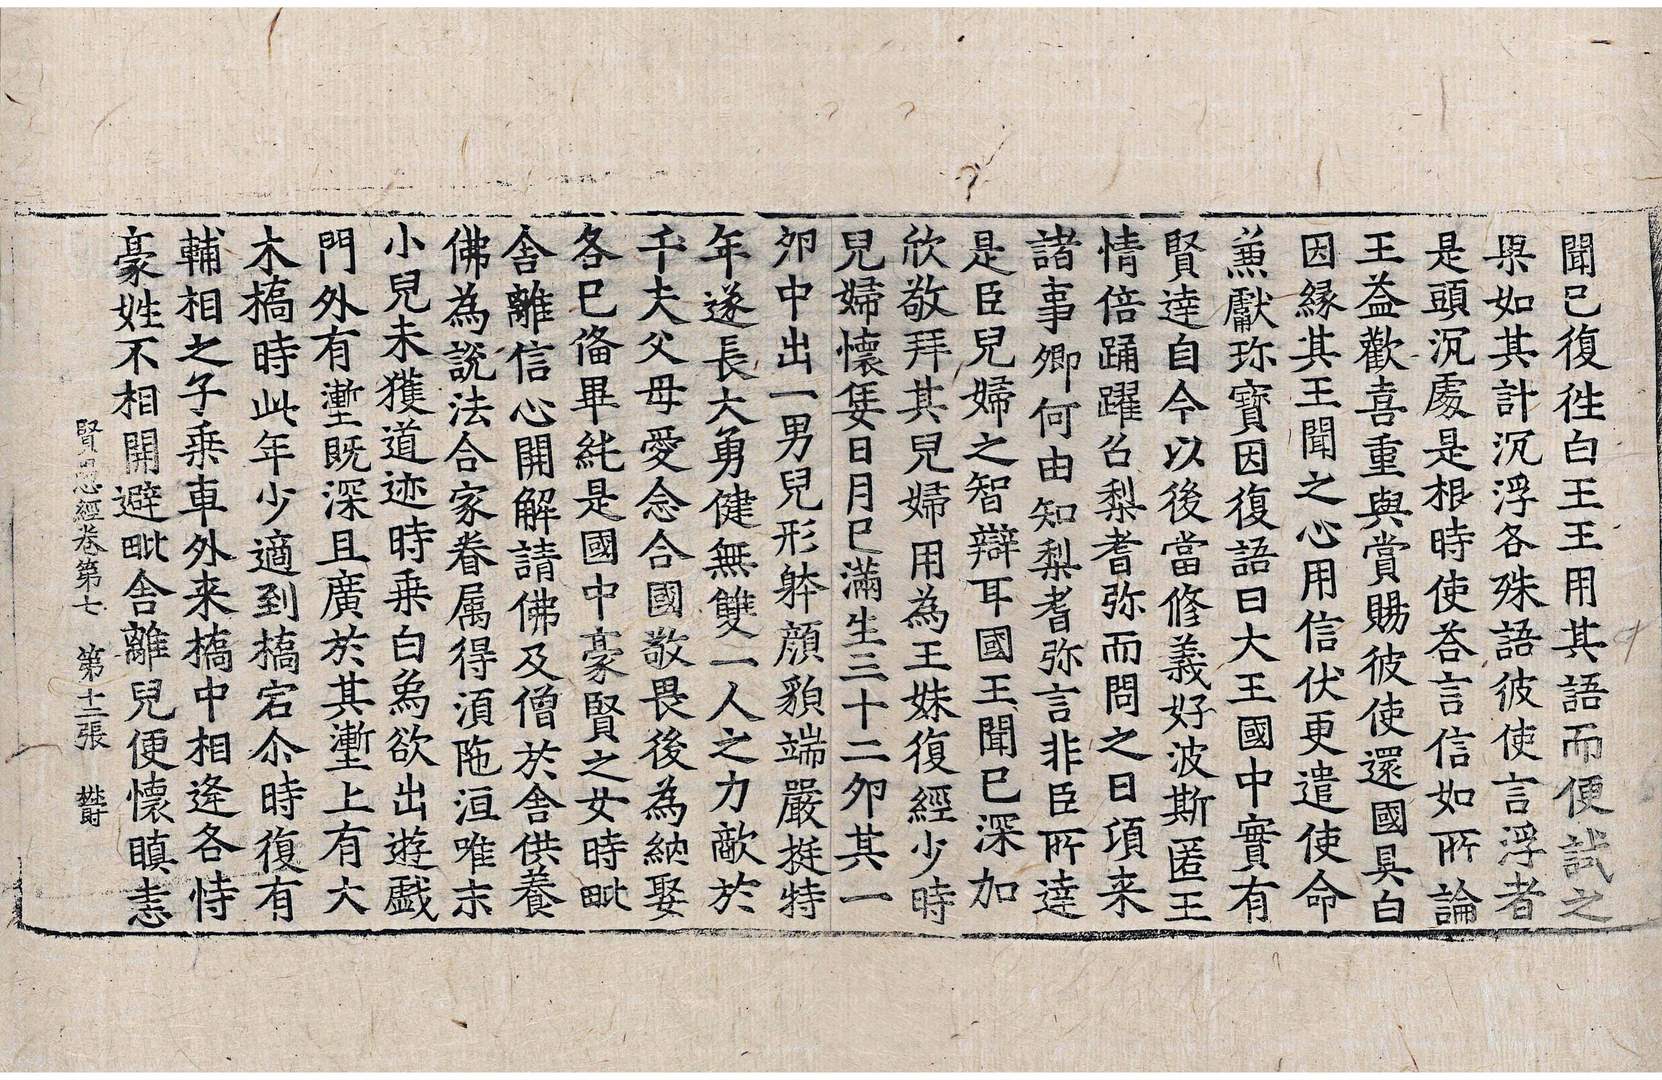 聞已復徃白王王用其語而便試之
果如其計沉浮各殊語彼使言浮者
是頭沉處是根時使荅言信如所論
王益歡喜重與賞賜彼使還國具白
因緣其王聞之心用信伏更遣使命
兼獻珎寶因復語曰大王國中實有
賢達自今以後當修義好波斯匿王
情倍踊躍召梨耆弥而問之曰頃来
諸事卿何由知梨耆弥言非臣所達
是臣兒婦之智辯耳國王聞已深加
欣敬拜其兒婦用為王妹復經少時
兒婦懷妊日月已滿生三十二卵其一
卵中出一男兒形躰顔貌端嚴挺特
年遂長大勇健無雙一人之力敵於
千夫父母愛念合國敬畏後為納娶
各已俻畢純是國中豪賢之女時毗
舍離信心開解請佛及僧於舍供養
佛為説法合家眷属得湏陁洹唯末
小兒未獲道迹時乗白象欲出遊戲
門外有壍既深且廣於其壍上有大
木橋時此年少適到橋宕尒時復有
輔相之子乗車外来橋中相逢各恃
豪姓不相開避毗舍離兒便懷瞋恚
賢愚經卷第七 第十二張 欝